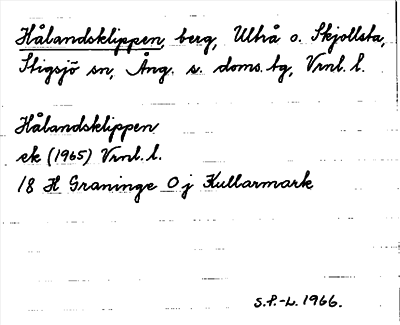 Hålandsklippen, berg, Ultrå o. Skjollsta,
Stigsjö sn, Ång. s. doms. tg, Vrnl. l.
Hålandsklippen
ek (1965) Vrnl. l.
18 H Graninge 0 j Kullarmark
S.F.-L. 1966.